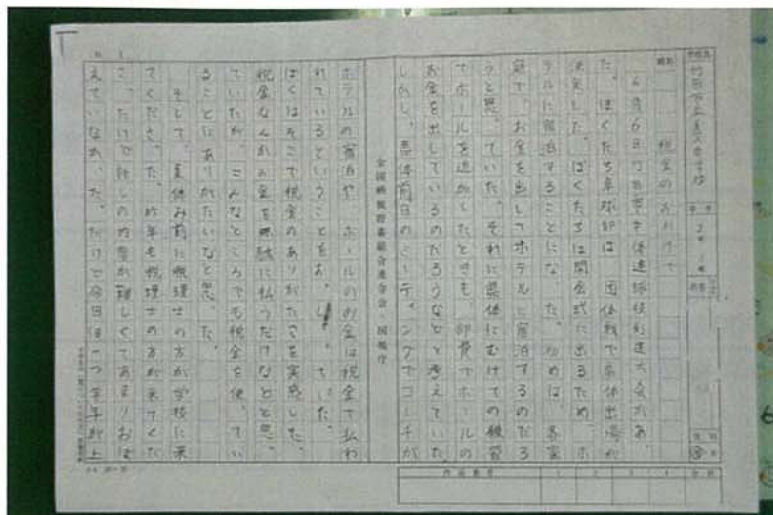 税金のおかげで
六月六日竹田市中体連球技剣道大会があっ
た。ぼくたち卓球部は、団体戦で県体出場が
決定した。ぼくたちは開会式に出るため、ホ
テルに宿泊することになった。初めは、各家
庭で、お金を出してホテルに宿泊するのだろ
うと思っていた。それに県体にむけての練習
でホールを追加したときも、部費でホールの
お金を出しているのだろうなどと考えていた。
しかし、県体前日のミーティングでコーチが
全国納税貯蓄組合連合会 国税庁
ホテルの宿泊や、ホールのお金は税金で払わ
れているということをおっしゃっていた。
ぼくはそこで税金のありがたさを実感した。
税金なんかお金を無駄に払うだけなどと思っ
ていたが、こんなところでも税金を使ってい
ることにありがたいなと思った。
そして、夏休み前に税理士の方が学校に来
てくださった。昨年も税理士の方が来てくだ
さったけど話しの内容が難しくてあまりおぼ
えていなかった。だけど今回は一つ学年が上